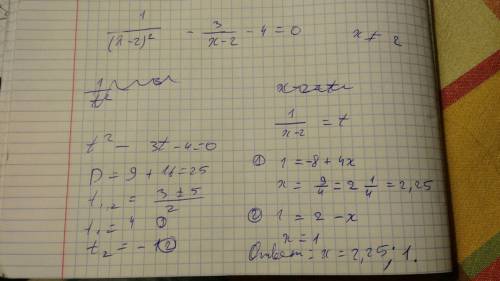 1/(x-2)² - 3/(x-2) - 4 = 0    x ≠ 2
1/t²
1/(x-2) = t
t² - 3t - 4 = 0
D = 9 + 16 = 25
t₁,₂ = (3 ± 5)/2
t₁ = 4 ①
t₂ = -1 ②
① 1 = -8 + 4x
x = 9/4 = 2 1/4 = 2,25
② 1 = 2 - x
x = 1
Ответ: x = 2,25; 1.